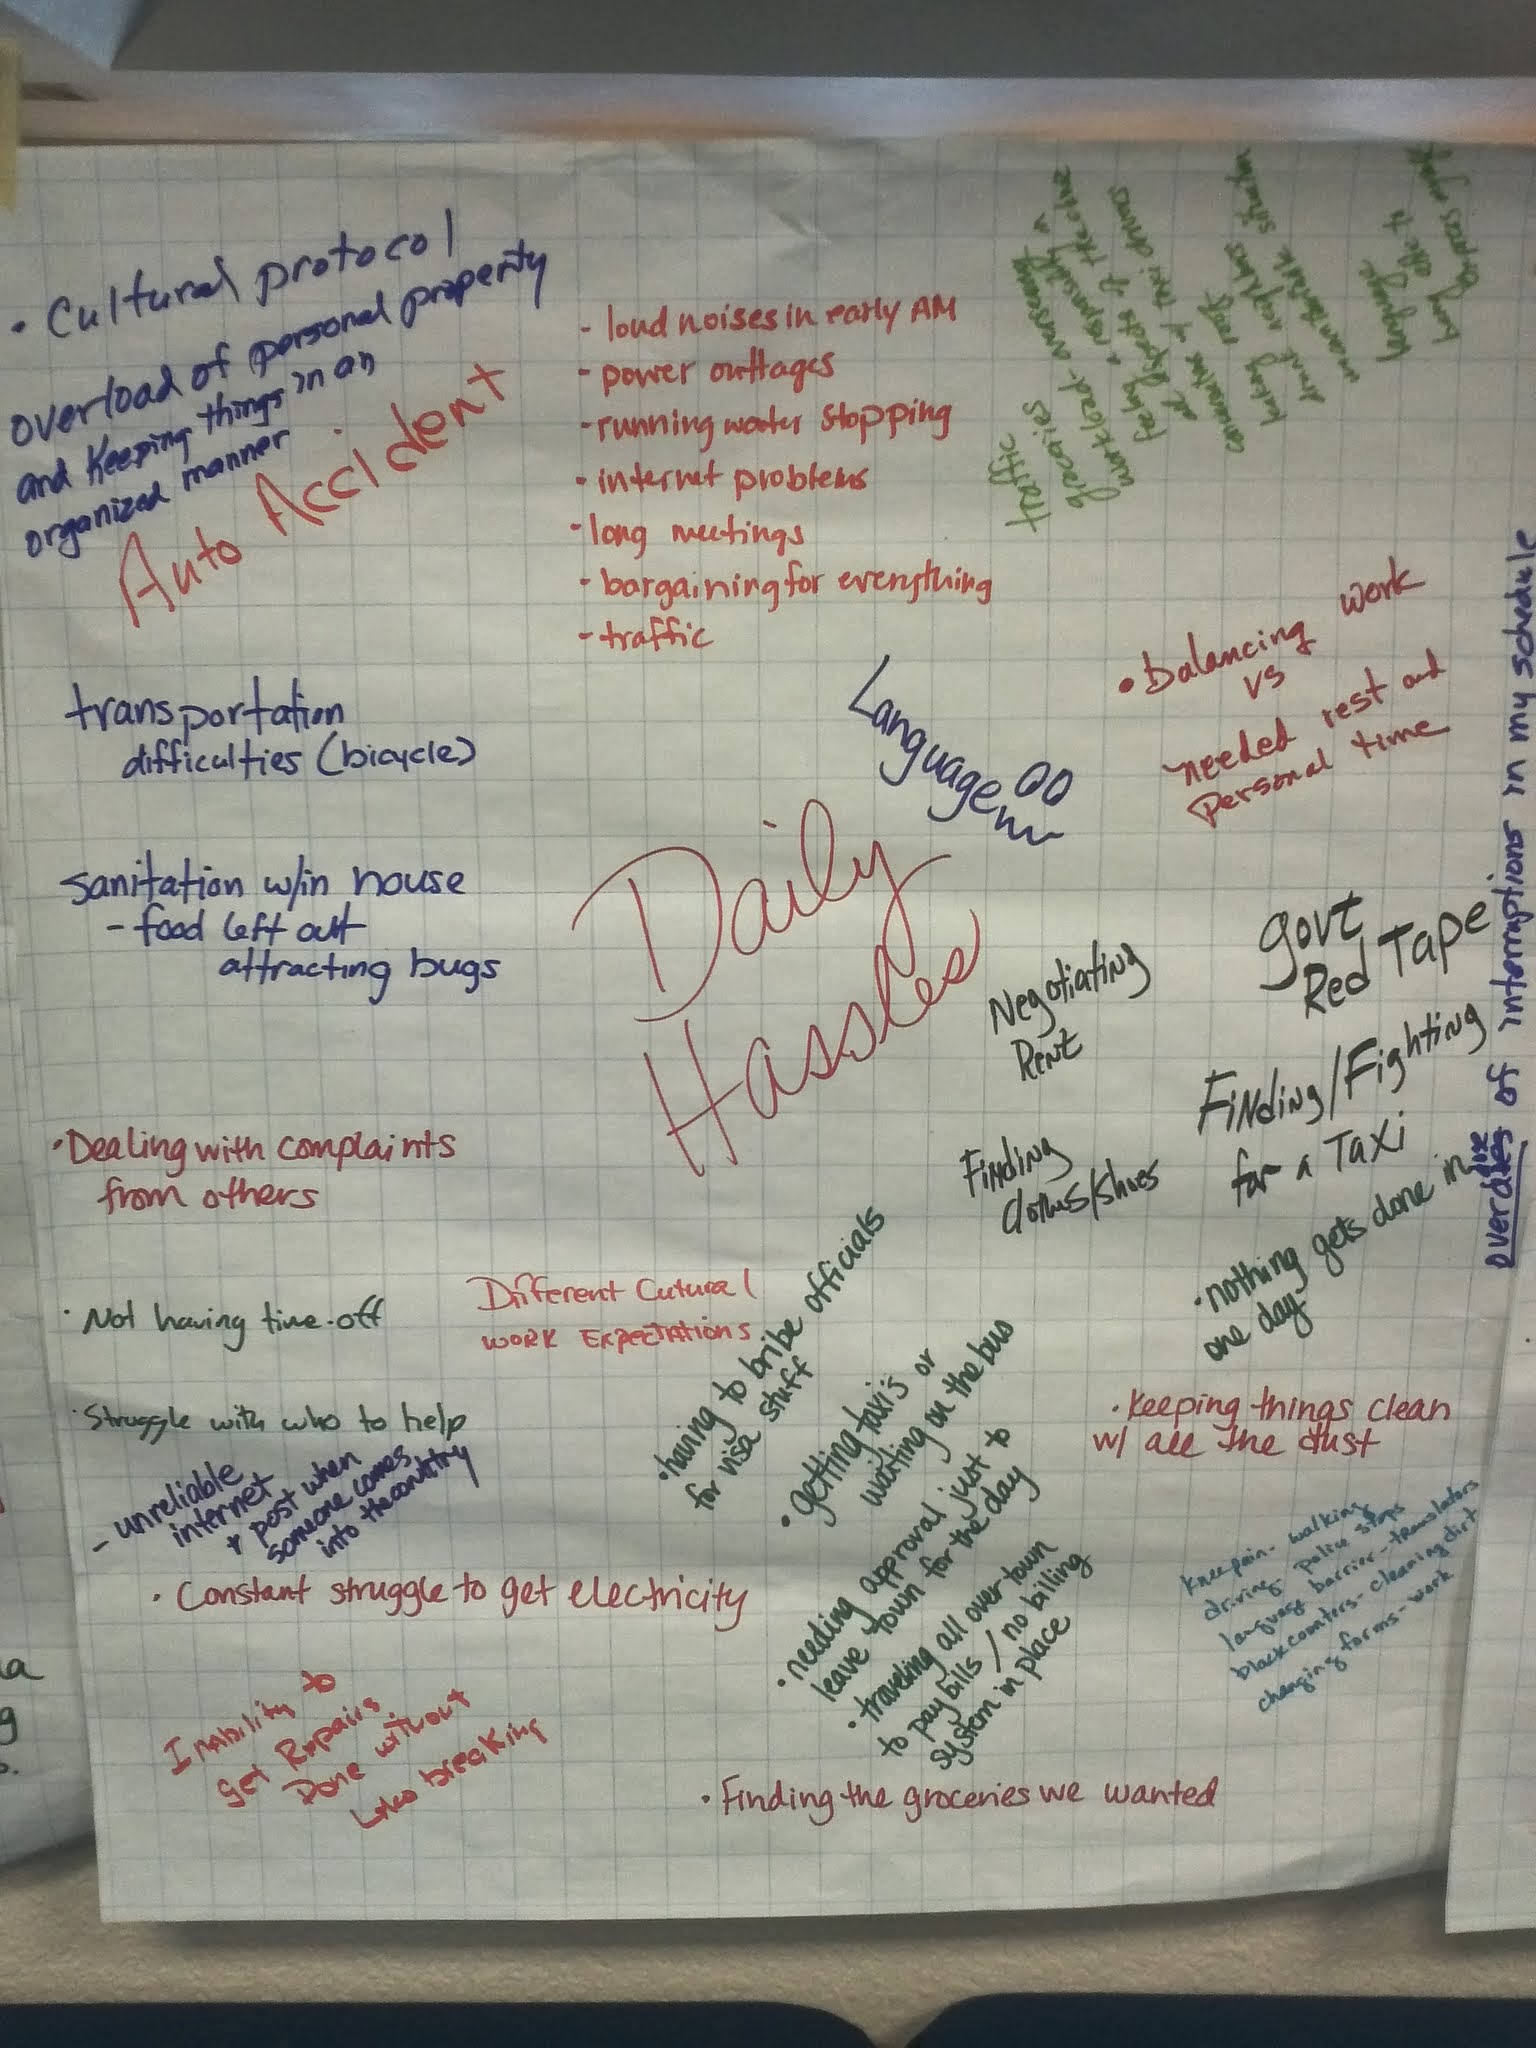 • Cultural protocol
overload of personal property
and Keeping things in an
organized manner
Auto Accident
- loud noises in early AM
- power outtages
- running water stopping
- internet problems
- long meetings
- bargaining for everything
- traffic
traffic
groceries
workload - overseeing
feeling a responsibility in
all aspects of the
conversations w/ taxi drivers
taking
drunk neighbors
uncomfortable situation
language
being able to
express myself
transportation
difficulties (bicycle)
Language
• balancing work
vs
needed rest and
personal time
sanitation w/in house
- food left out
attracting bugs
Daily
Hassles
Negotiating
Rent
govt
Red Tape
Finding/Fighting
for a Taxi
Finding
clothes/shoes
overdose of interruptions in my schedule
• Dealing with complaints
from others
• nothing gets done in
one day
• Not having time-off
Different Cutural
work Expectations
• having to bribe officials
for visa stuff
• getting taxi's or
waiting on the bus
• needing approval just to
leave town for the day
• traveling all over town
to pay bills / no billing
system in place
• Keeping things clean
w/ all the dust
• Struggle with who to help
- unreliable
internet
+ post when
someone comes
into the country
• Constant struggle to get electricity
knee pain - walking
driving police stops
language barrier - translators
black counters - cleaning dirt
changing forms - work
Inability to
get Repairs
Done without
breaking
• Finding the groceries we wanted